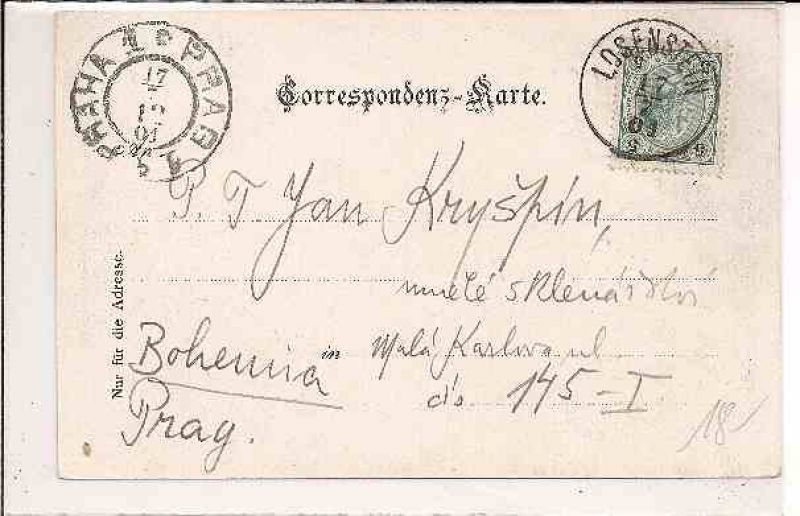 PRAHA 1 * PRAG 1
17
01
LOSENSTEIN
17
Correspondenz-Karte.
5
P. T. Jan Kryšpín,
umělé sklenářství
Bohemia in Malá Karlova ul.
Prag. čís. 145-I.
Nur für die Adresse.
18